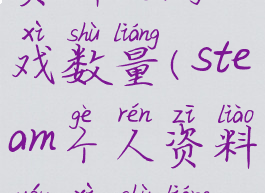 xì shù liáng
戏数量(ste
gè rén zī liào
am个人资料